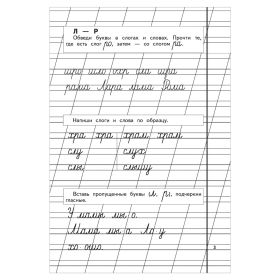 Л — Р
Обведи буквы в слогах и словах. Прочти те,
где есть слог ро, затем — со слогом ра.
рама Лара лама Рама
Напиши слоги и слова по образцу.
хра хра храм храм
слу слух
слы слышу
Вставь пропущенные буквы л, р, подчеркни
гласные.
У мамы мы о.
Мама мы а Ла у
3